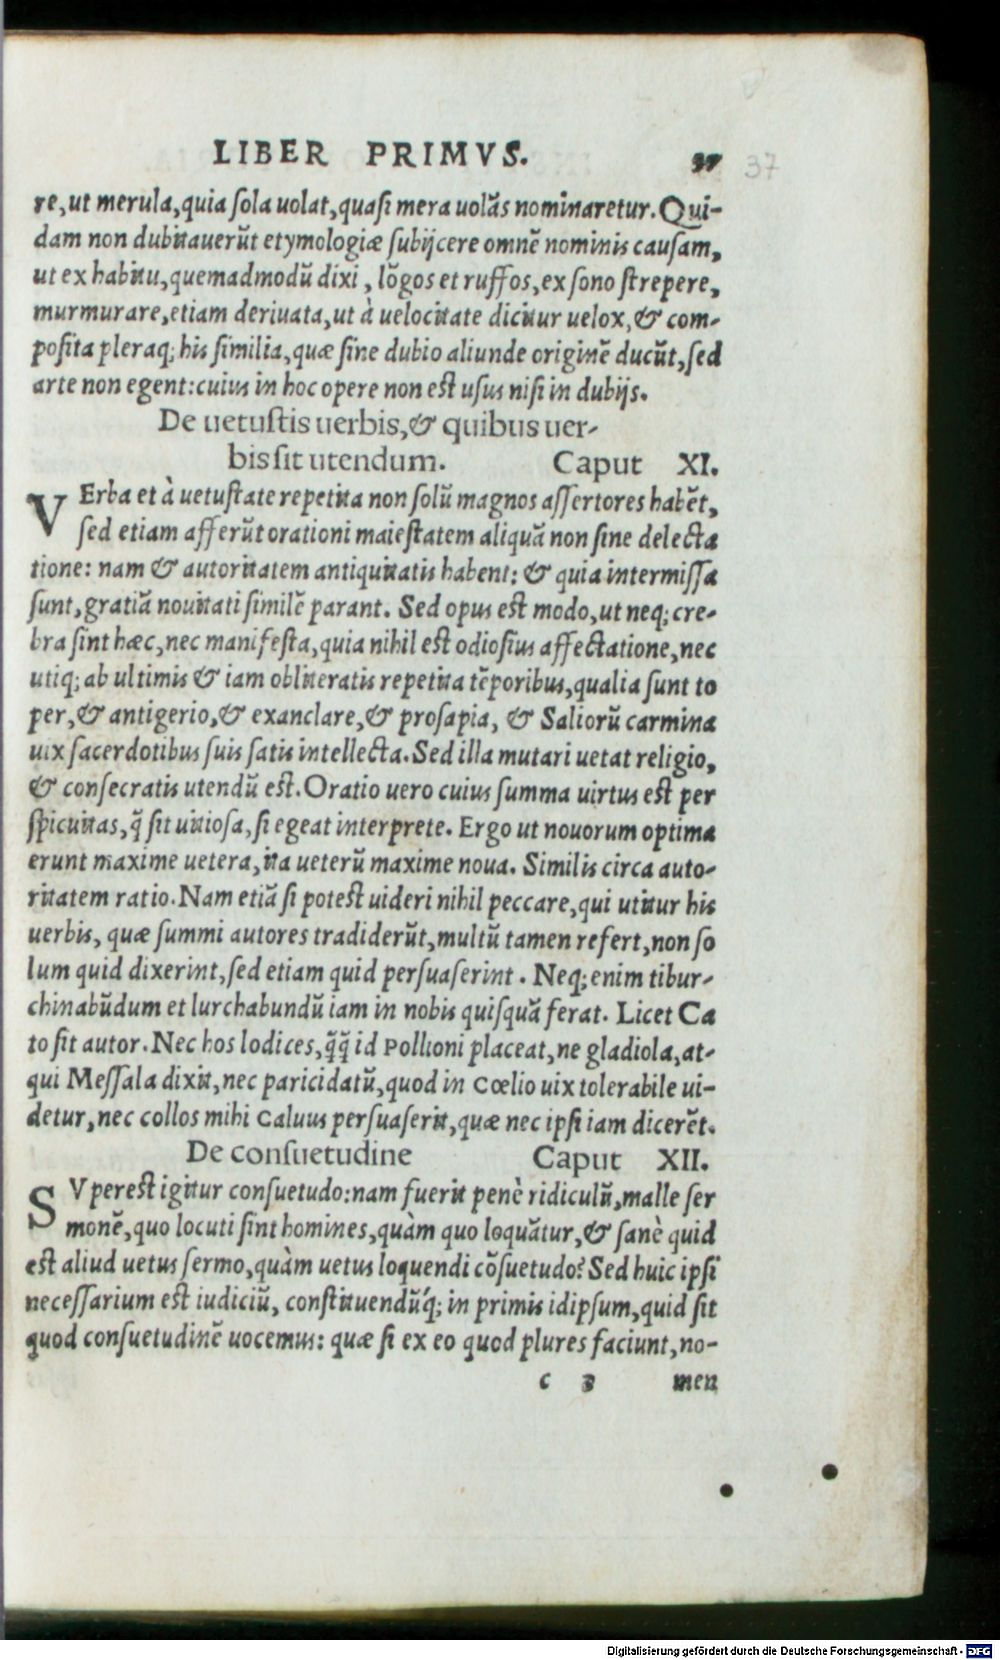 LIBER PRIMVS. 37 37
re, ut merula, quia sola uolat, quasi mera uolās nominaretur. Qui-
dam non dubitauerūt etymologiæ subijcere omnē nominis causam,
ut ex habitu, quemadmodū dixi, lōgos et ruffos, ex sono strepere,
murmurare, etiam deriuata, ut à uelocitate dicitur uelox, & com-
posita pleraq; his similia, quæ sine dubio aliunde originē ducūt, sed
arte non egent: cuius in hoc opere non est usus nisi in dubijs.
De uetustis uerbis, & quibus uer-
bis sit utendum. Caput XI.
VErba et à uetustate repetita non solū magnos assertores habēt,
sed etiam afferūt orationi maiestatem aliquā non sine delecta
tione: nam & autoritatem antiquitatis habent: & quia intermissa
sunt, gratiā nouitati similē parant. Sed opus est modo, ut neq; cre-
bra sint hæc, nec manifesta, quia nihil est odiosius affectatione, nec
utiq; ab ultimis & iam obliteratis repetita tēporibus, qualia sunt to
per, & antigerio, & exanclare, & prosapia, & Saliorū carmina
uix sacerdotibus suis satis intellecta. Sed illa mutari uetat religio,
& consecratis utendū est. Oratio uero cuius summa uirtus est per
spicuitas, q̄ sit uitiosa, si egeat interprete. Ergo ut nouorum optima
erunt maxime uetera, ita ueterū maxime noua. Similis circa auto-
ritatem ratio. Nam etiā si potest uideri nihil peccare, qui utitur his
uerbis, quæ summi autores tradiderūt, multū tamen refert, non so
lum quid dixerint, sed etiam quid persuaserint. Neq; enim tibur-
chinabūdum et lurchabundū iam in nobis quisquā ferat. Licet Ca
to sit autor. Nec hos lodices, q̄q̄ id Pollioni placeat, ne gladiola, at-
qui Messala dixit, nec paricidatū, quod in Cœlio uix tolerabile ui-
detur, nec collos mihi Caluus persuaserit, quæ nec ipsi iam dicerēt.
De consuetudine Caput XII.
SVperest igitur consuetudo: nam fuerit penè ridiculū, malle ser
monē, quo locuti sint homines, quàm quo loquātur, & sanè quid
est aliud uetus sermo, quàm uetus loquendi cōsuetudo? Sed huic ipsi
necessarium est iudiciū, constituendū́q; in primis idipsum, quid sit
quod consuetudinē uocemus: quæ si ex eo quod plures faciunt, no-
c 3 men
Digitalisierung gefördert durch die Deutsche Forschungsgemeinschaft - DFG